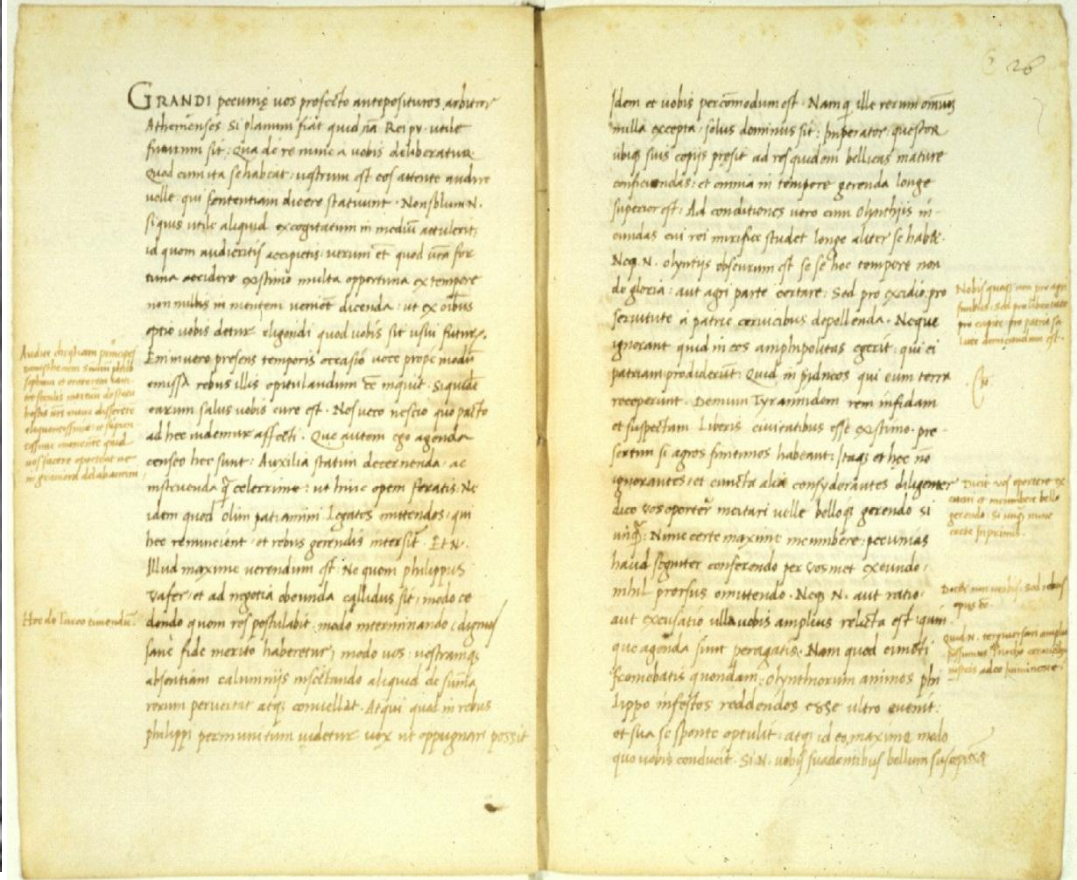 GRANDI pecunię vos profecto anteposituros arbitror
Athenienses Si planum fiat quid nã Rei pu. utile
futurum sit: Qua de re nunc a vobis deliberatur
Quod cum ita se habeat: uestrum est eos attente audire
uelle qui sententiam dicere statuunt. Non solum .N.
si quis utile aliquid excogitatum in mediũ attulerit:
id quom audieritis accipietis: uerum et quod ura for
tuna accidere existimo multa oportuna ex tempore
non nullis in mentem uenient dicenda: ut ex oibus
optio vobis detur eligendi quod vobis sit usui
Enimuero presens temporis occasio voce prope modũ
emissa rebus illis opitulandum ee inquit. Si quidẽ
earum salus uobis cure est. Nos uero nescio quo pacto
ad hec uidemur affecti. Que autem ego agenda
censeo hec sunt: Auxilia statim decernenda: ac
instruenda q̃ celerrime: ut hinc opem feratis: Ne
idem quod olim patiamini Legatos mittendos: qui
hec renuncient et rebus gerendis intersit. Et .N.
Illud maxime verendum est. Ne quom philippus
vafer: et ad negotia obeunda callidus sit: modo ce
dendo quom res postulabit, modo interminando (dignus
sane fide merito haberetur) modo vos: uestramq;
absentiam calumnijs insectando aliquid de summa
rerum peruertat atq; conuellat. Atqui quod in rebus
philippi permunitum uidetur uix ut oppugnari possit
Hoc de Turco timendũ.
26
Idem et vobis percõmodum est. Namq; ille rerum omniũ
nulla excepta solus dominus sit: Imperator: questor
ubiq; suis copijs presit ad res quidem bellicas mature
conficiendas: et omnia in tempore gerenda longe
superior est: Ad conditiones vero cum Olynthijs in-
eundas cui rei mirifice studet longe aliter se habet.
Neq; .N. olyntijs obscurum est se se hoc tempore non
de gloria: aut agri parte certare: Sed pro exidio: pro
seruitute a patrie ceruicibus depellenda. Neque
ignorant quid in eos amphipolitas egerit: qui ei
patriam prodiderũt: Quid in pydneos qui eum terra
receperunt. Demum Tyrannidem rem infidam
et suspectam Liberis ciuitatibus esse existimo: pre-
sertim si agros finitimos habeant: Itaq; et hec nõ
ignorantes: et cuncta alia consyderantes diligenter
dico vos oportet incitari uelle belloq; gerendo si
unq̃: Nunc certe maxime incumbere: pecunias
haud segniter conferendo per vosmet exeundo:
nihil prorsus omittendo. Neq; .N. aut ratio
aut excusatio ulla uobis amplius relicta est: quin
que agenda sunt peragatis. Nam quod cuncti
olynthiorum animos phi
lippo infestos reddendos esse ultro euenit:
et sua se sponte optulit: atq; id eo maxime modo
quo uobis conducit. Si .N. uobis suadentibus bellum
Nobis quoq; non pro agri
finibus. Sed pro libertate
pro capite: pro patria
est.
Decet vos oportere
et incumbere bello
gerendo: Si unq̃; nunc
certe
non uerbis: sed rebus
opus ee.